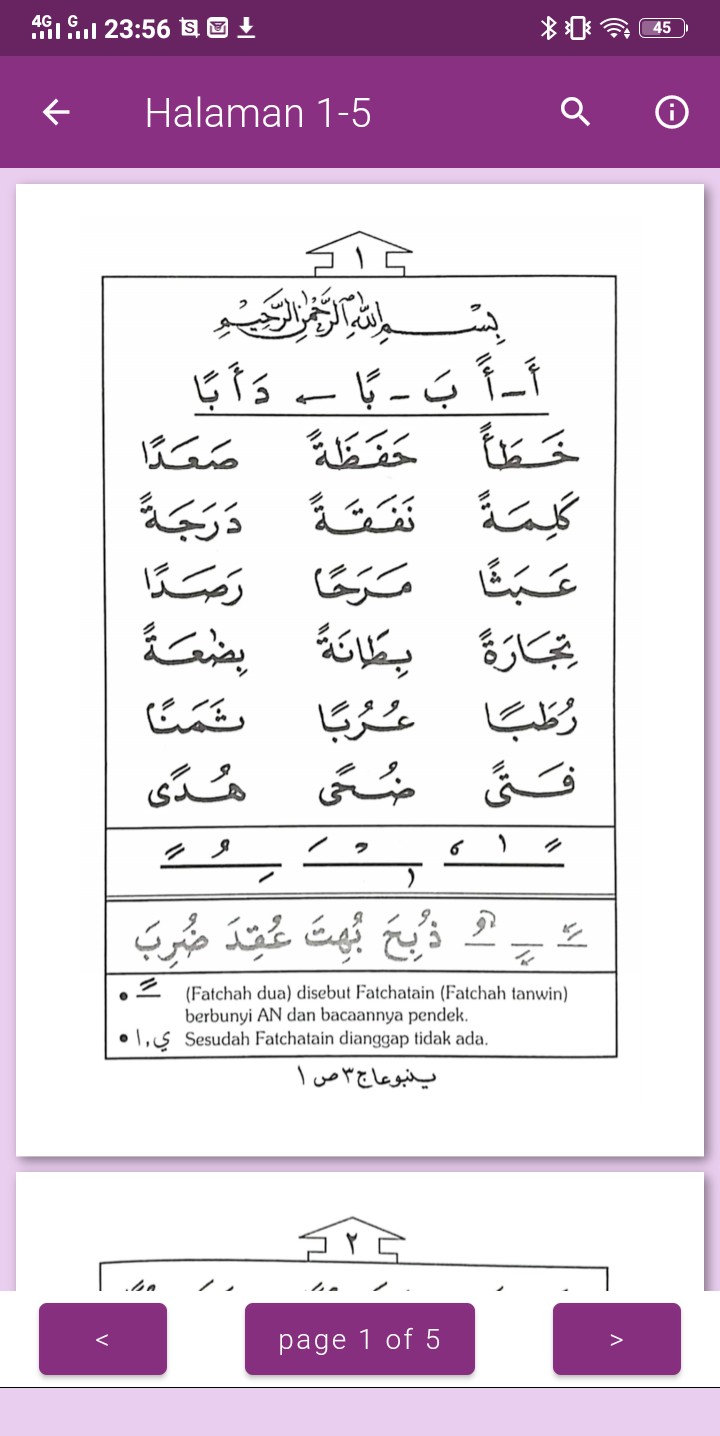 4G G 23:56 45
Halaman 1-5
١
بِسْمِ اللهِ الرَّحْمٰنِ الرَّحِيْمِ
أَ - أً بَ - بًا ← دَأَبًا
خَطَأً حَفَظَةً صَعَدًا
كَلِمَةً نَفَقَةً دَرَجَةً
عَبَثًا مَرَحًا رَصَدًا
تِجَارَةً بِطَانَةً بِضٰعَةً
رُطَبًا عُرُبًا ثَمَنًا
فَتًى ضُحًى هُدًى
ذُبِحَ بُهِتَ عُقِدَ ضُرِبَ
• ـً (Fatchah dua) disebut Fatchatain (Fatchah tanwin)
berbunyi AN dan bacaannya pendek.
• ا , ي Sesudah Fatchatain dianggap tidak ada.
ينبوعا ج ٣ ص ١
٢
< page 1 of 5 >